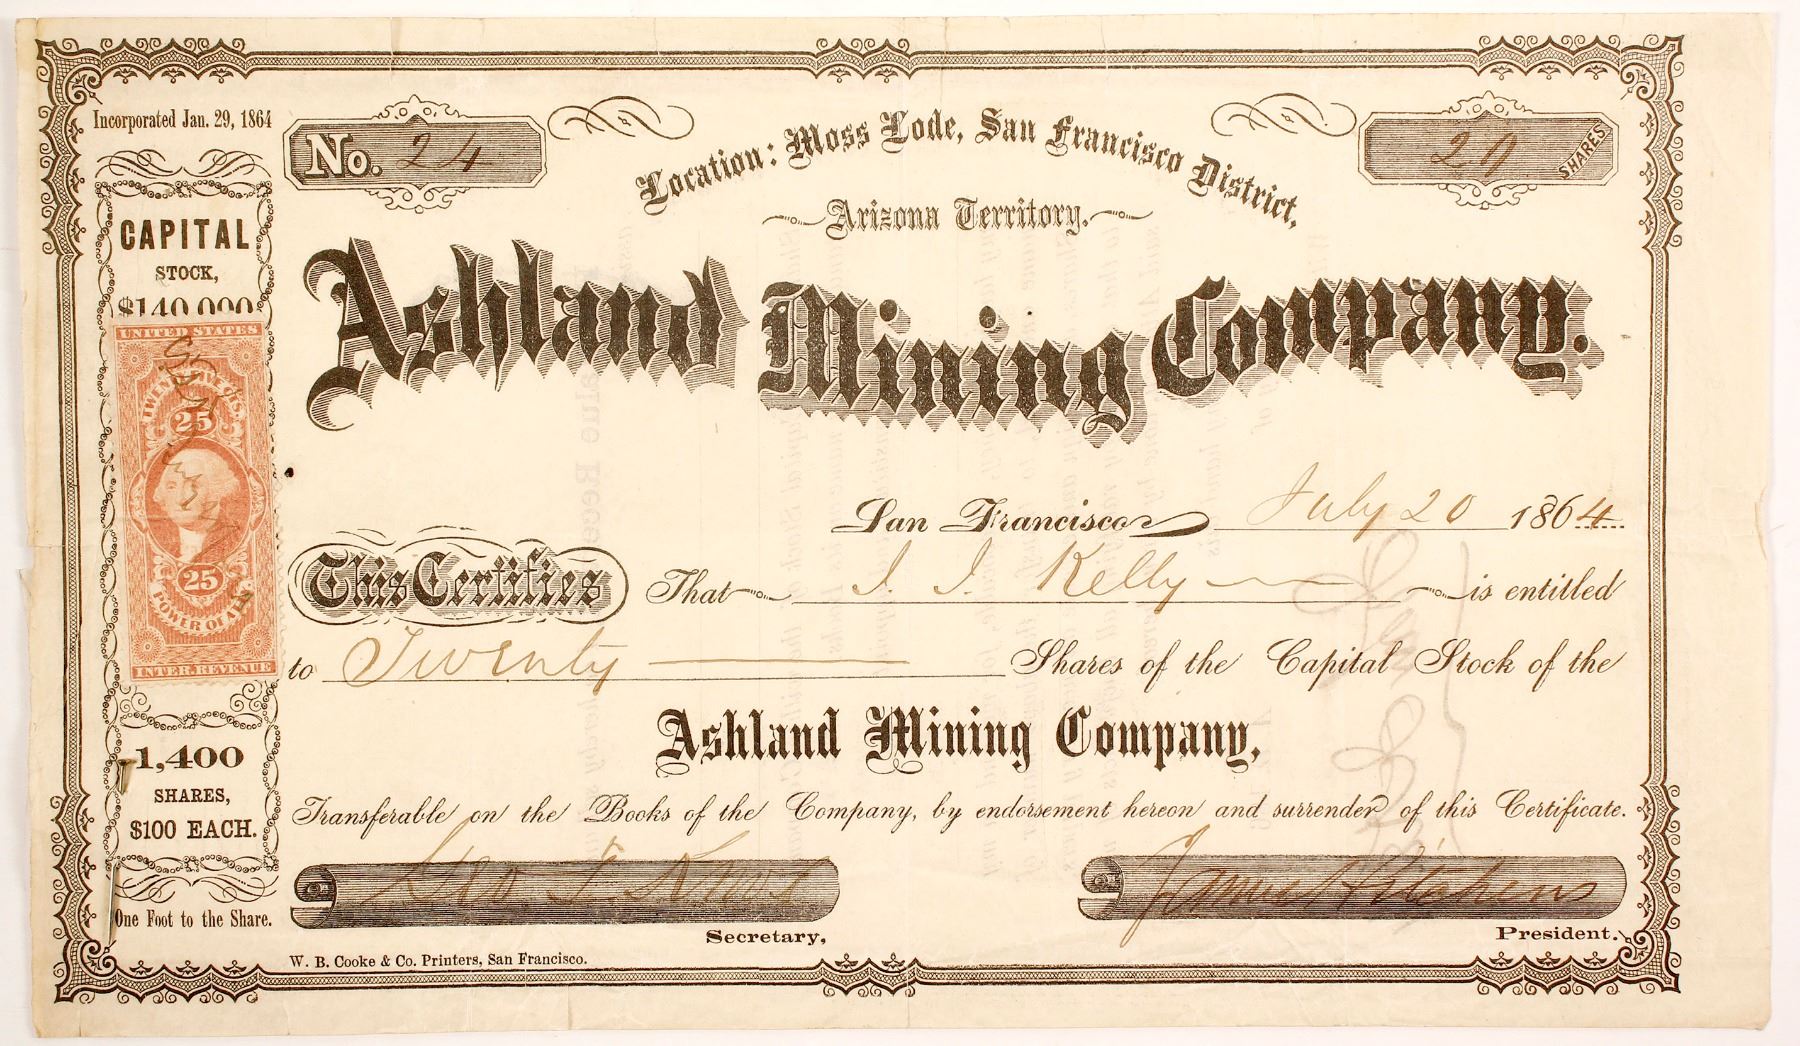 Incorporated Jan. 29, 1864
No. 24
Location: Moss Lode, San Francisco District,
Arizona Territory.
20 SHARES
CAPITAL
STOCK,
$140,000
UNITED STATES
TWENTY FIVE CTS.
25
25
POWER OF ATT'Y
INTER. REVENUE
1,400
SHARES,
$100 EACH.
One Foot to the Share.
Ashland Mining Company.
San Francisco July 20 1864
This Certifies That J. J. Kelly is entitled
to Twenty Shares of the Capital Stock of the
Ashland Mining Company,
Transferable on the Books of the Company, by endorsement hereon and surrender of this Certificate.
Geo. F.
Secretary,
Samuel Pitchens
President.
W. B. Cooke & Co. Printers, San Francisco.